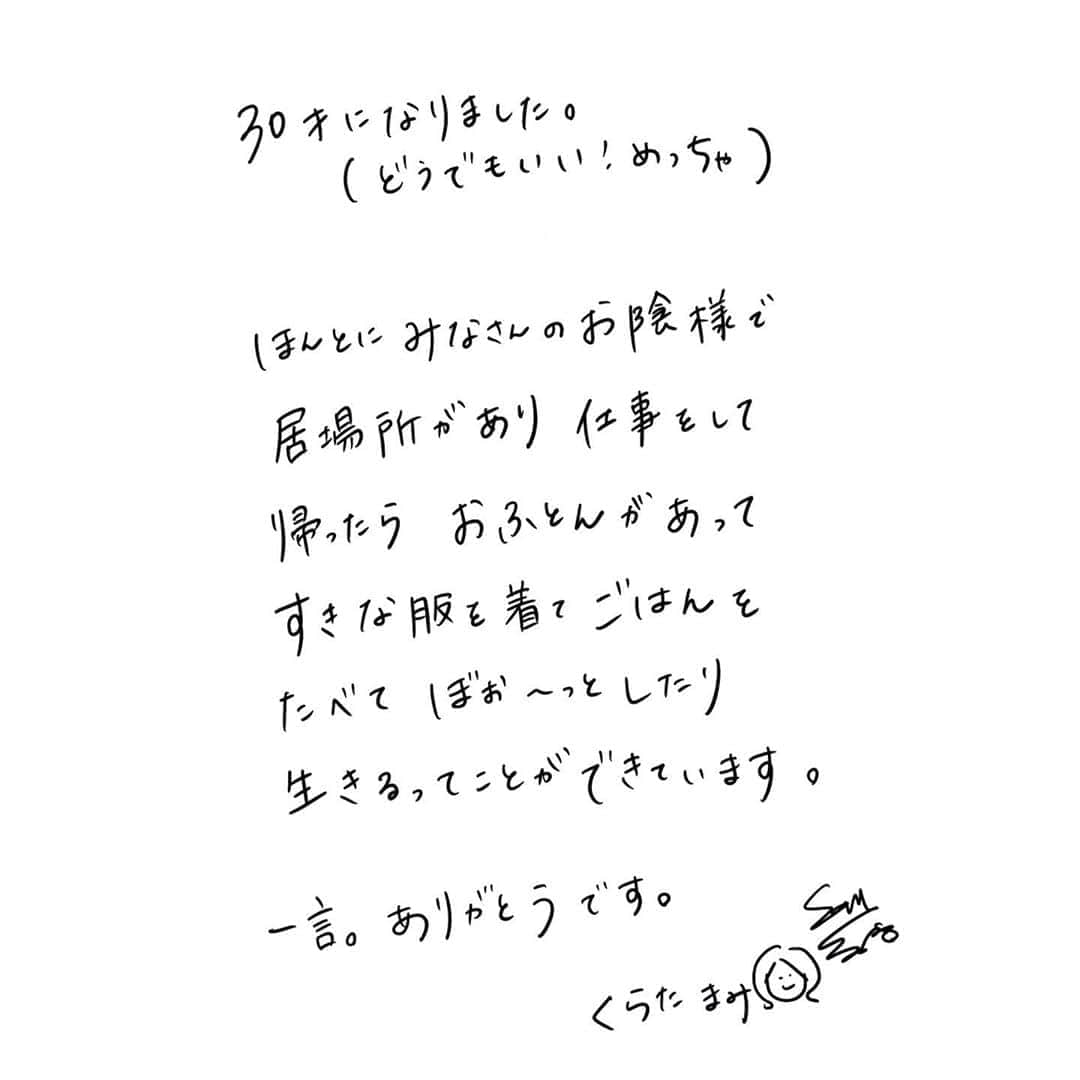 30才になりました。
(どうでもいい!めっちゃ)
ほんとに みなさんの お陰様で
居場所があり 仕事をして
帰ったら おふとんがあって
すきな服を着て ごはんを
たべて ぼぉ〜っと したり
生きるってことができています。
一言。ありがとうです。
くらた まみ